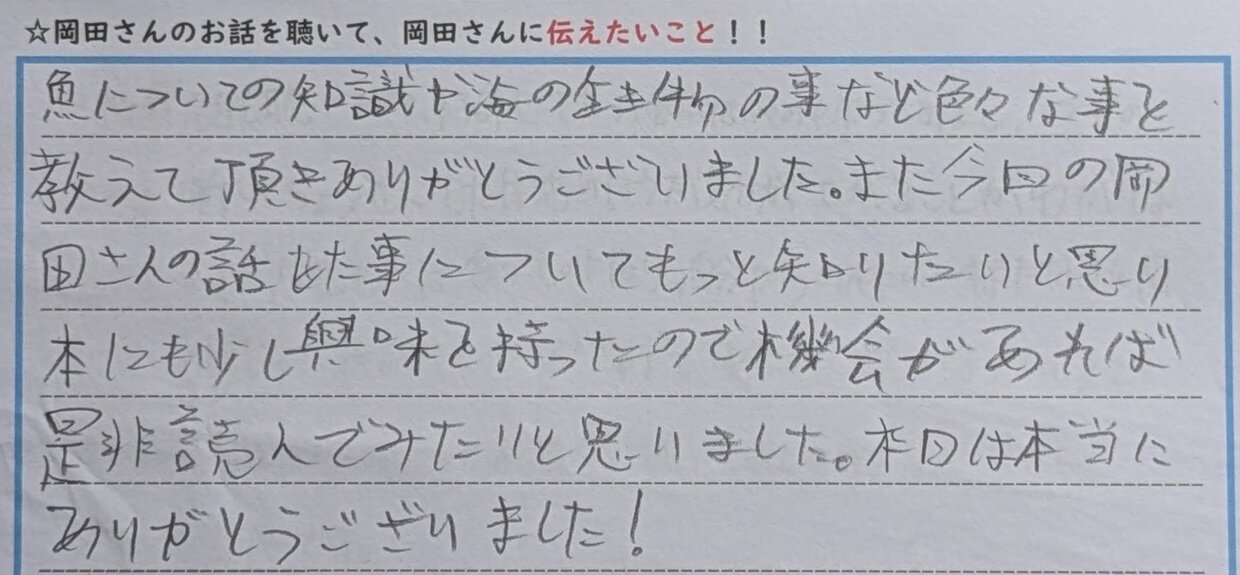 ☆岡田さんのお話を聴いて、岡田さんに伝えたいこと！！
魚についての知識や海の生き物の事など色々な事を
教えて頂きありがとうございました。また今回の岡
田さんの話をた事についてもっと知りたいと思い
本にも少し興味を持ったので機会があれば
是非読んでみたいと思いました。本日は本当に
ありがとうございました！